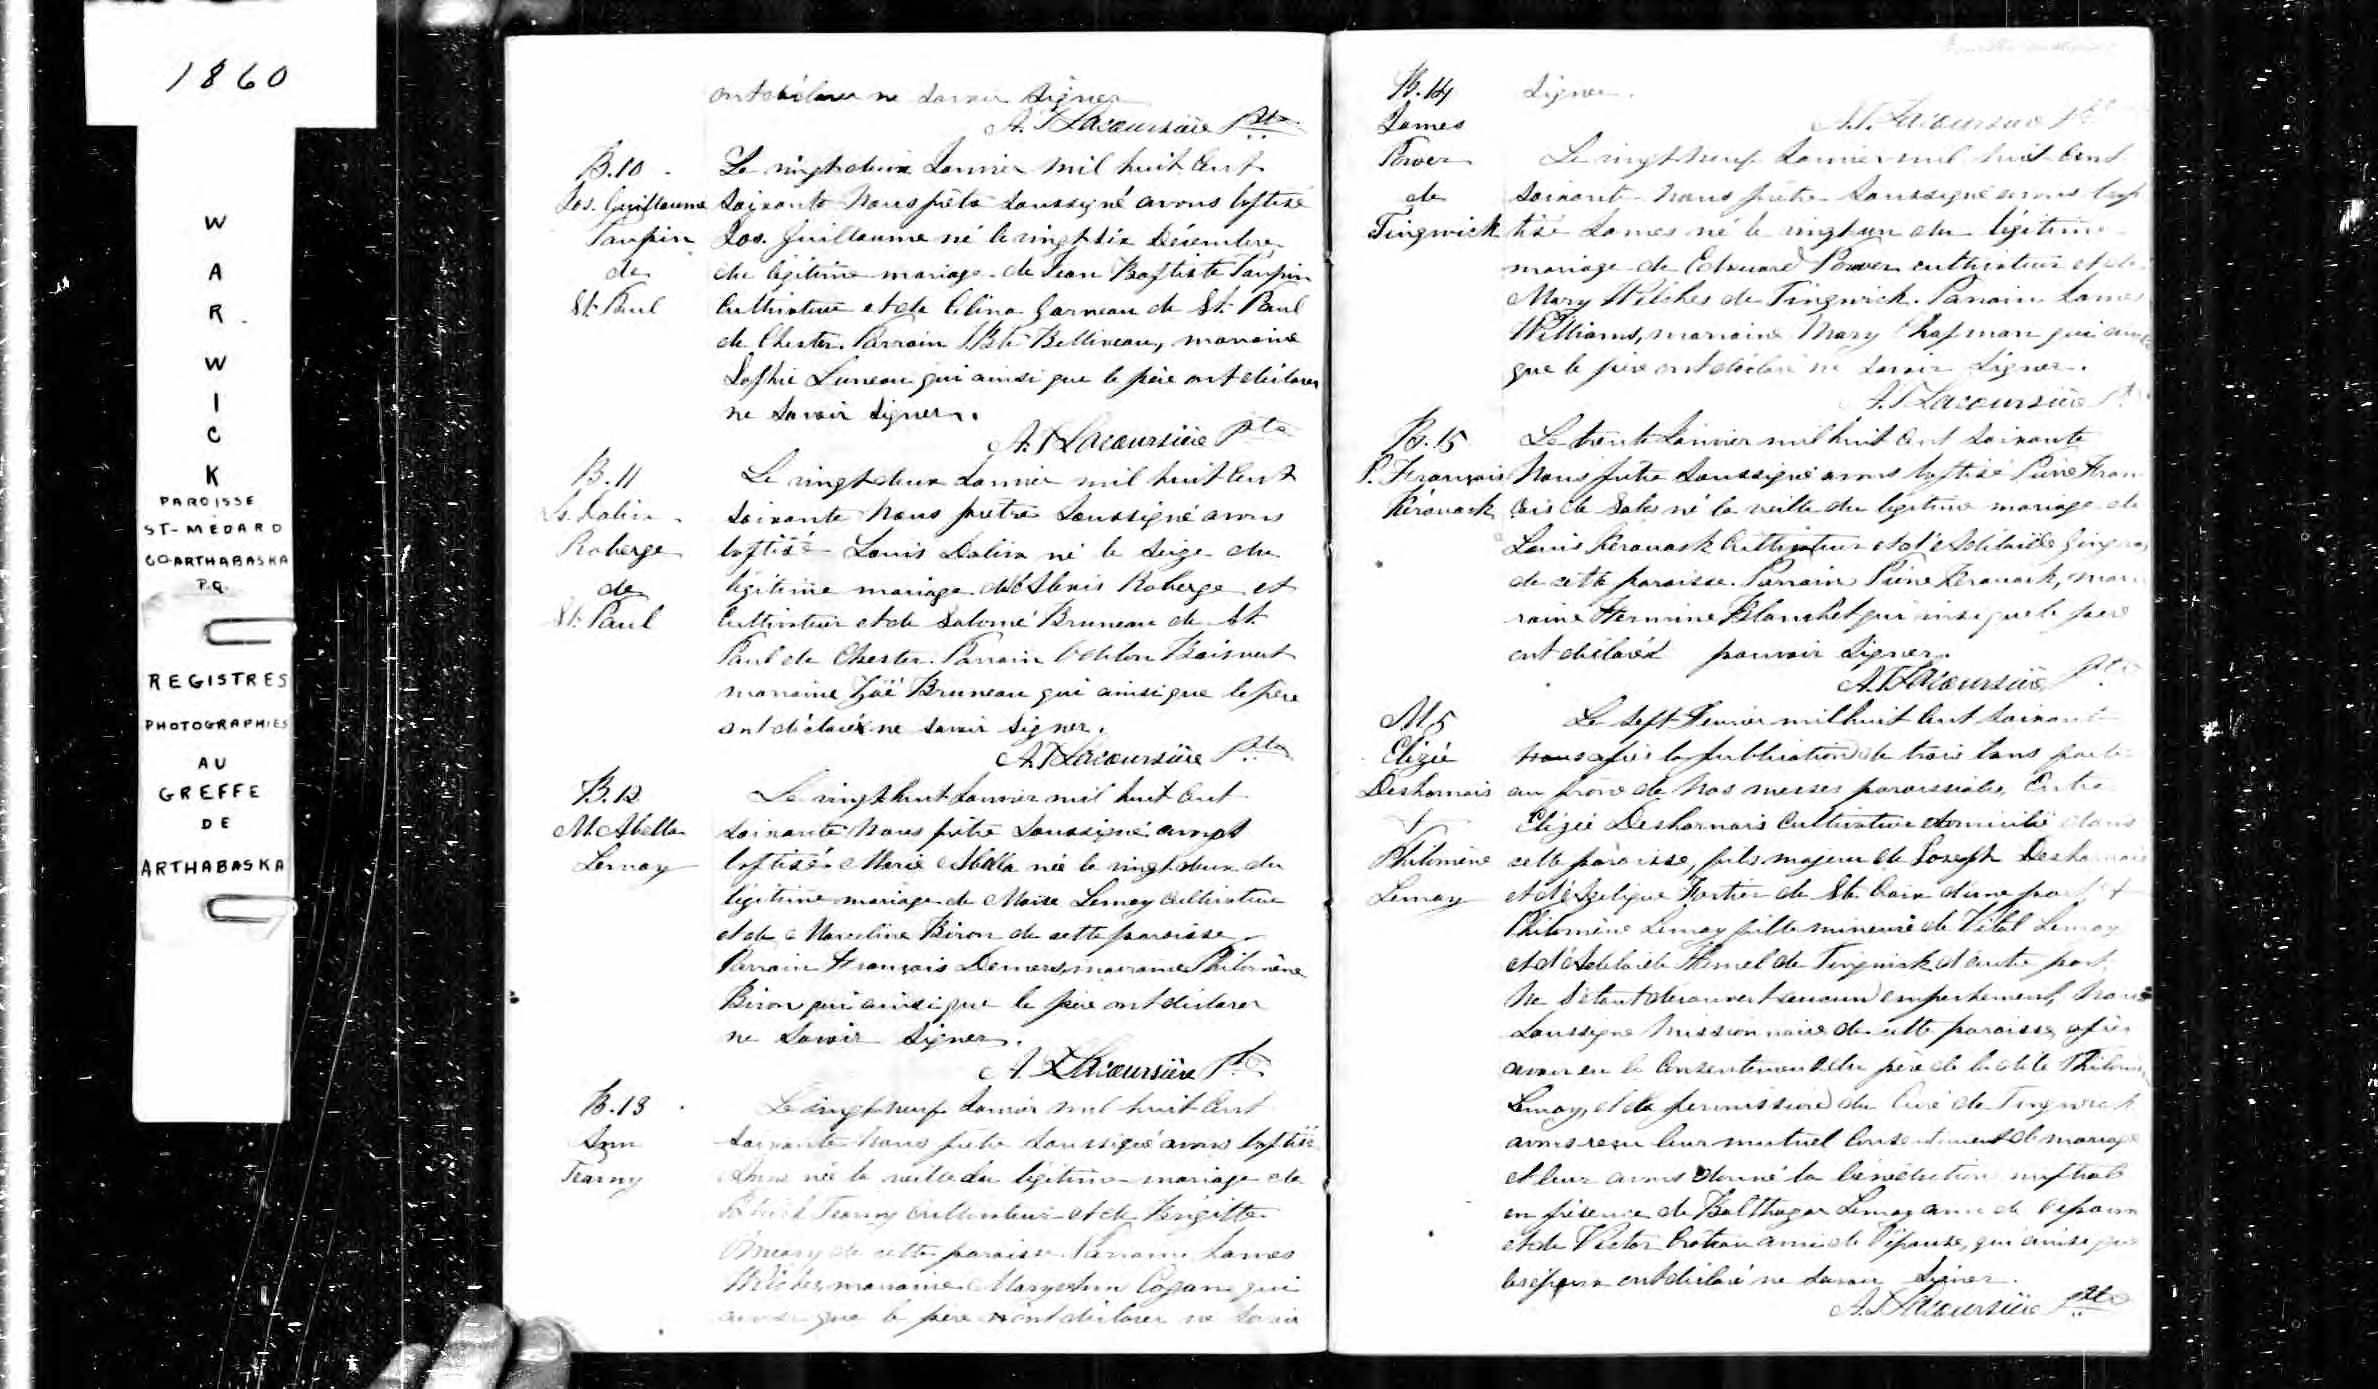 1860
W
A
R
W
I
C
K
PAROISSE
ST-MÉDARD
CO-ARTHABASKA
P.Q.
REGISTRES
PHOTOGRAPHIES
AU
GREFFE
DE
ARTHABASKA
ont déclarer ne savoir signer
A.T Lacoursière Ptre
B.10
Jos. Guillaume
Paupin
de
St. Paul
Le vingt deux Janvier mil huit Cent
soixante Nous prêtre soussigné avons baptisé
Jos. Guillaume né le vingt six Décembre
du légitime mariage de Jean Baptiste Paupin
Cultivateur et de Célina Garneau de St. Paul
de Chester. Parrain Bte Belliveau, marraine
Sophie Luneau qui ainsi que le père ont déclarer
ne savoir signer.
A.T Lacoursière Ptre
B.11
Ls. Dalica
Roberge
de
St. Paul
Le vingt deux Janvier mil huit Cent
soixante Nous prêtre soussigné avons
baptisé Louis né le seize du
légitime mariage d'Alexis Roberge et
Cultivateur et de Salomé Bruneau de St.
Paul de Chester. Parrain Odilon Boisvert
marraine Zoë Bruneau qui ainsi que le père
ont déclaré ne savoir signer.
A.T Lacoursière Ptre
B.12
M. Abella
Lemay
Le vingt huit Janvier mil huit Cent
soixante Nous prêtre soussigné avons
baptisé Marie Abella née le vingt deux du
légitime mariage de Moïse Lemay Cultivateur
et de Marceline Biron de cette paroisse
Parrain François Demers, marraine Philomène
Biron qui ainsi que le père ont déclarer
ne savoir signer.
A.T Lacoursière Ptre
B.13
Ann
Tearny
Le vingt neuf Janvier mil huit Cent
soixante Nous prêtre soussigné avons baptisé
Anne née la veille du légitime mariage de
Patrick Tearny Cultivateur et de Brigitte
de cette paroisse Parrain James
marraine Mary Ann Cogan qui
ainsi que le père ont déclarer ne savoir
B.14
James
Power
de
Tingwick
signer.
A.T. Lacoursière Ptre
Le vingt neuf Janvier mil huit Cent
soixante Nous prêtre soussigné avons bap
tisé James né le vingt un du légitime
mariage de Edouard Power cultivateur et de
Mary Wilches de Tingwick. Parrain James
Williams, marraine Mary Chapman qui ainsi
que le père ont déclaré ne savoir signer.
A.T Lacoursière Ptre
B.15
P. François
Kérouack
Le trente Janvier mil huit Cent soixante
Nous prêtre soussigné avons baptisé Pierre Fran
çois de Sales né la veille du légitime mariage de
Louis Kérouack Cultivateur et d'Adélaïde Gingras
de cette paroisse. Parrain Pierre Kérouack, mar
raine Hermine Blanchet qui ainsi que le père
ont déclaré pouvoir signer.
A.T Lacoursière Ptre
M.5
Elizée
Desharnais
+
Philomène
Lemay
Le sept Février mil huit Cent soixante
après la publication de trois bans faite
au prône de nos messes paroissiales, Entre
Elizée Desharnais Cultivateur domicilié dans
cette paroisse, fils majeur de Joseph Desharnais
et d'Angélique Fortier de Ste. Croix d'une part +
Philomène Lemay fille mineure de Vital Lemay
et d'Adelaïde Hamel de Tingwick d'autre part,
Ne s'étant découvert aucun empêchement, Nous
soussigné Missionnaire de cette paroisse, après
avoir eu le Consentement du père de la dite Philomène
Lemay, et la permission du Curé de Tingwick
avons reçu leur mutuel Consentement de mariage
et leur avons donné la bénédiction nuptiale
en présence de Balthazar Lemay ami de l'époux
et de Victor Croteau ami de l'épouse, qui ainsi que
les époux ont déclaré ne savoir signer.
A.T Lacoursière Ptre